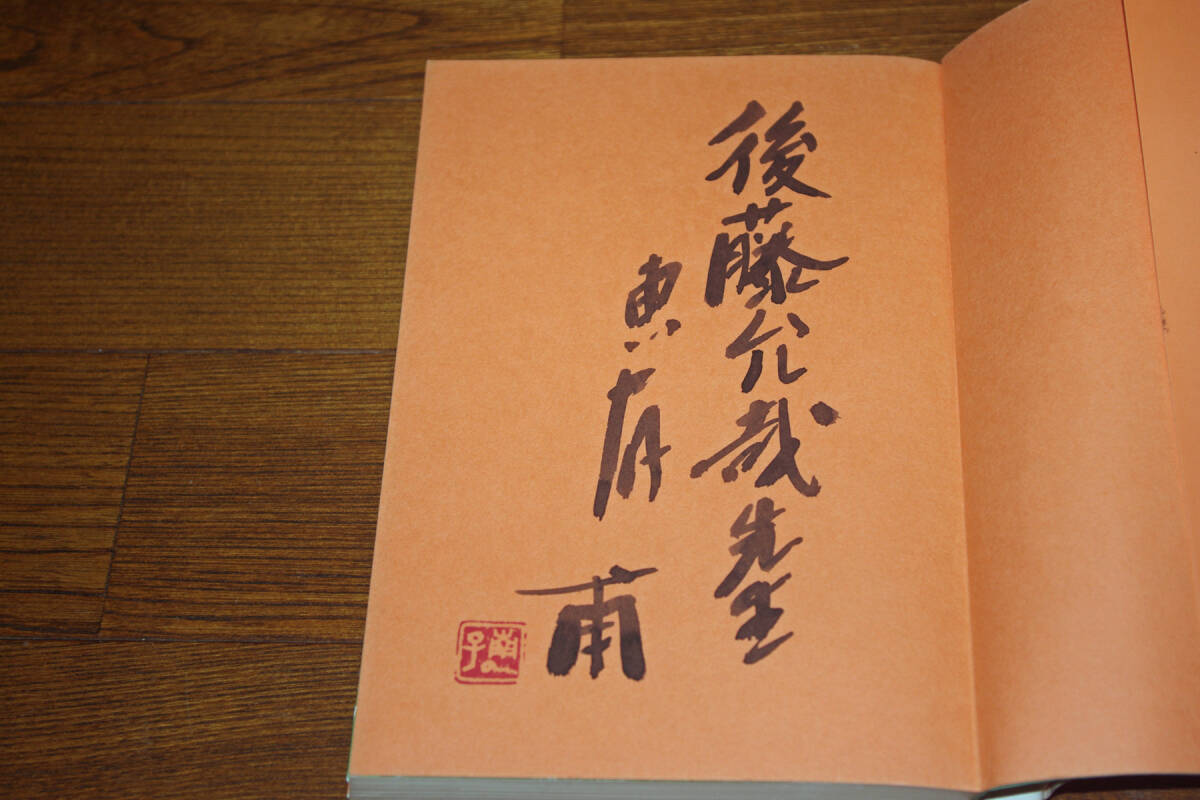 後藤允哉先生
恵存